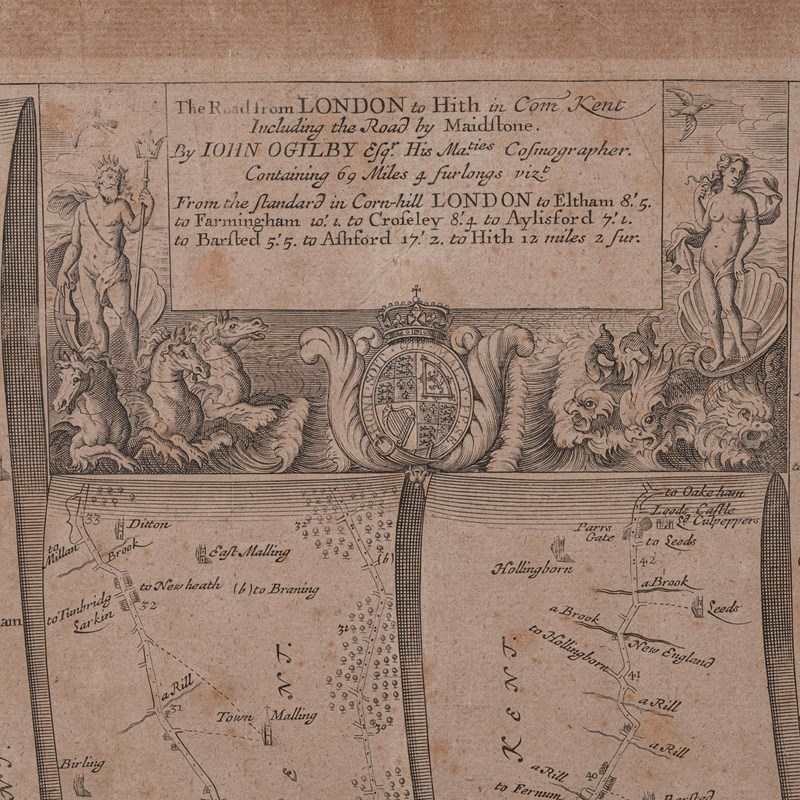 The Road from LONDON to Hith in Com Kent
Including the Road by Maidstone.
By IOHN OGILBY Esqr. His Maties Cosmographer.
Containing 69 Miles 4 furlongs vizt
From the standard in Corn-hill LONDON to Eltham 8'5.
to Farmingham 10'.1. to Croseley 8'.4 to Aylisford 7'.1.
to Barsted 5'.5. to Ashford 17'.2. to Hith 12 miles 2 fur.
33
Ditton
to Millan
Brook
East Malling
to Newheath
(b) to Braning
32
to Tunbridg
Larkin
a Rill
31
Town Malling
Birling
NT.
E
32
(b)
31
30
to Oakeham
Leeds Castle
Ld Culpeppers
Parrs
Gate
to Leeds
Hollingborn
42
a Brook
Leeds
a Brook
to Hollingborn
New England
41
a Rill
a Rill
a Rill
40
to Fernum
Barsted
KENT.
am